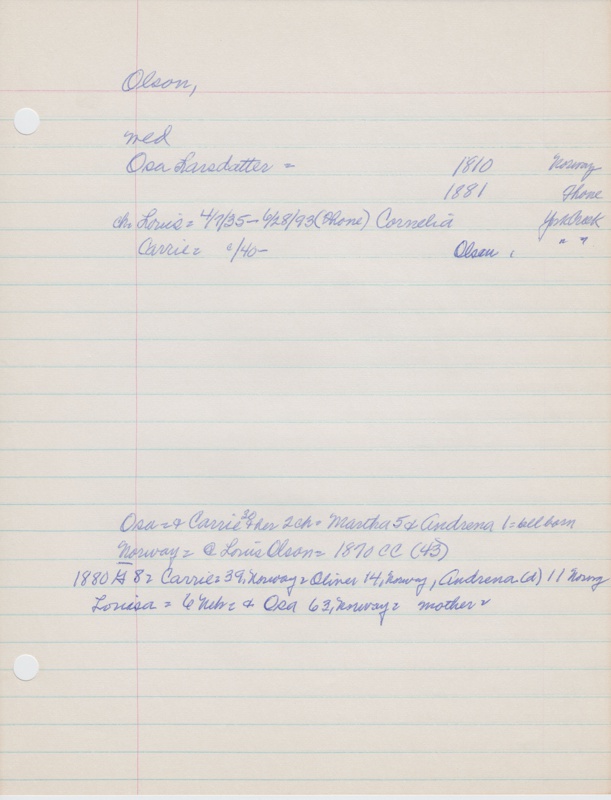 Olson,
med
Osa Larsdatter = 1810 Norway
1881 Home
ch. Louis = 4/7/35 - 6/28/93 (Home) Cornelia York Creek
Carrie = c/40- Olson, " "
Osa = & Carrie 30 & her 2 ch = Martha 5 & Andrena 1 = all born
Norway = @ Louis Olson = 1870 CC (43)
1880 # 8 = Carrie = 39, Norway = Oliver 14, Norway, Andrena (d) 11 Norwy
Louisa = 6 Neb = & Osa 63, Norway = mother =